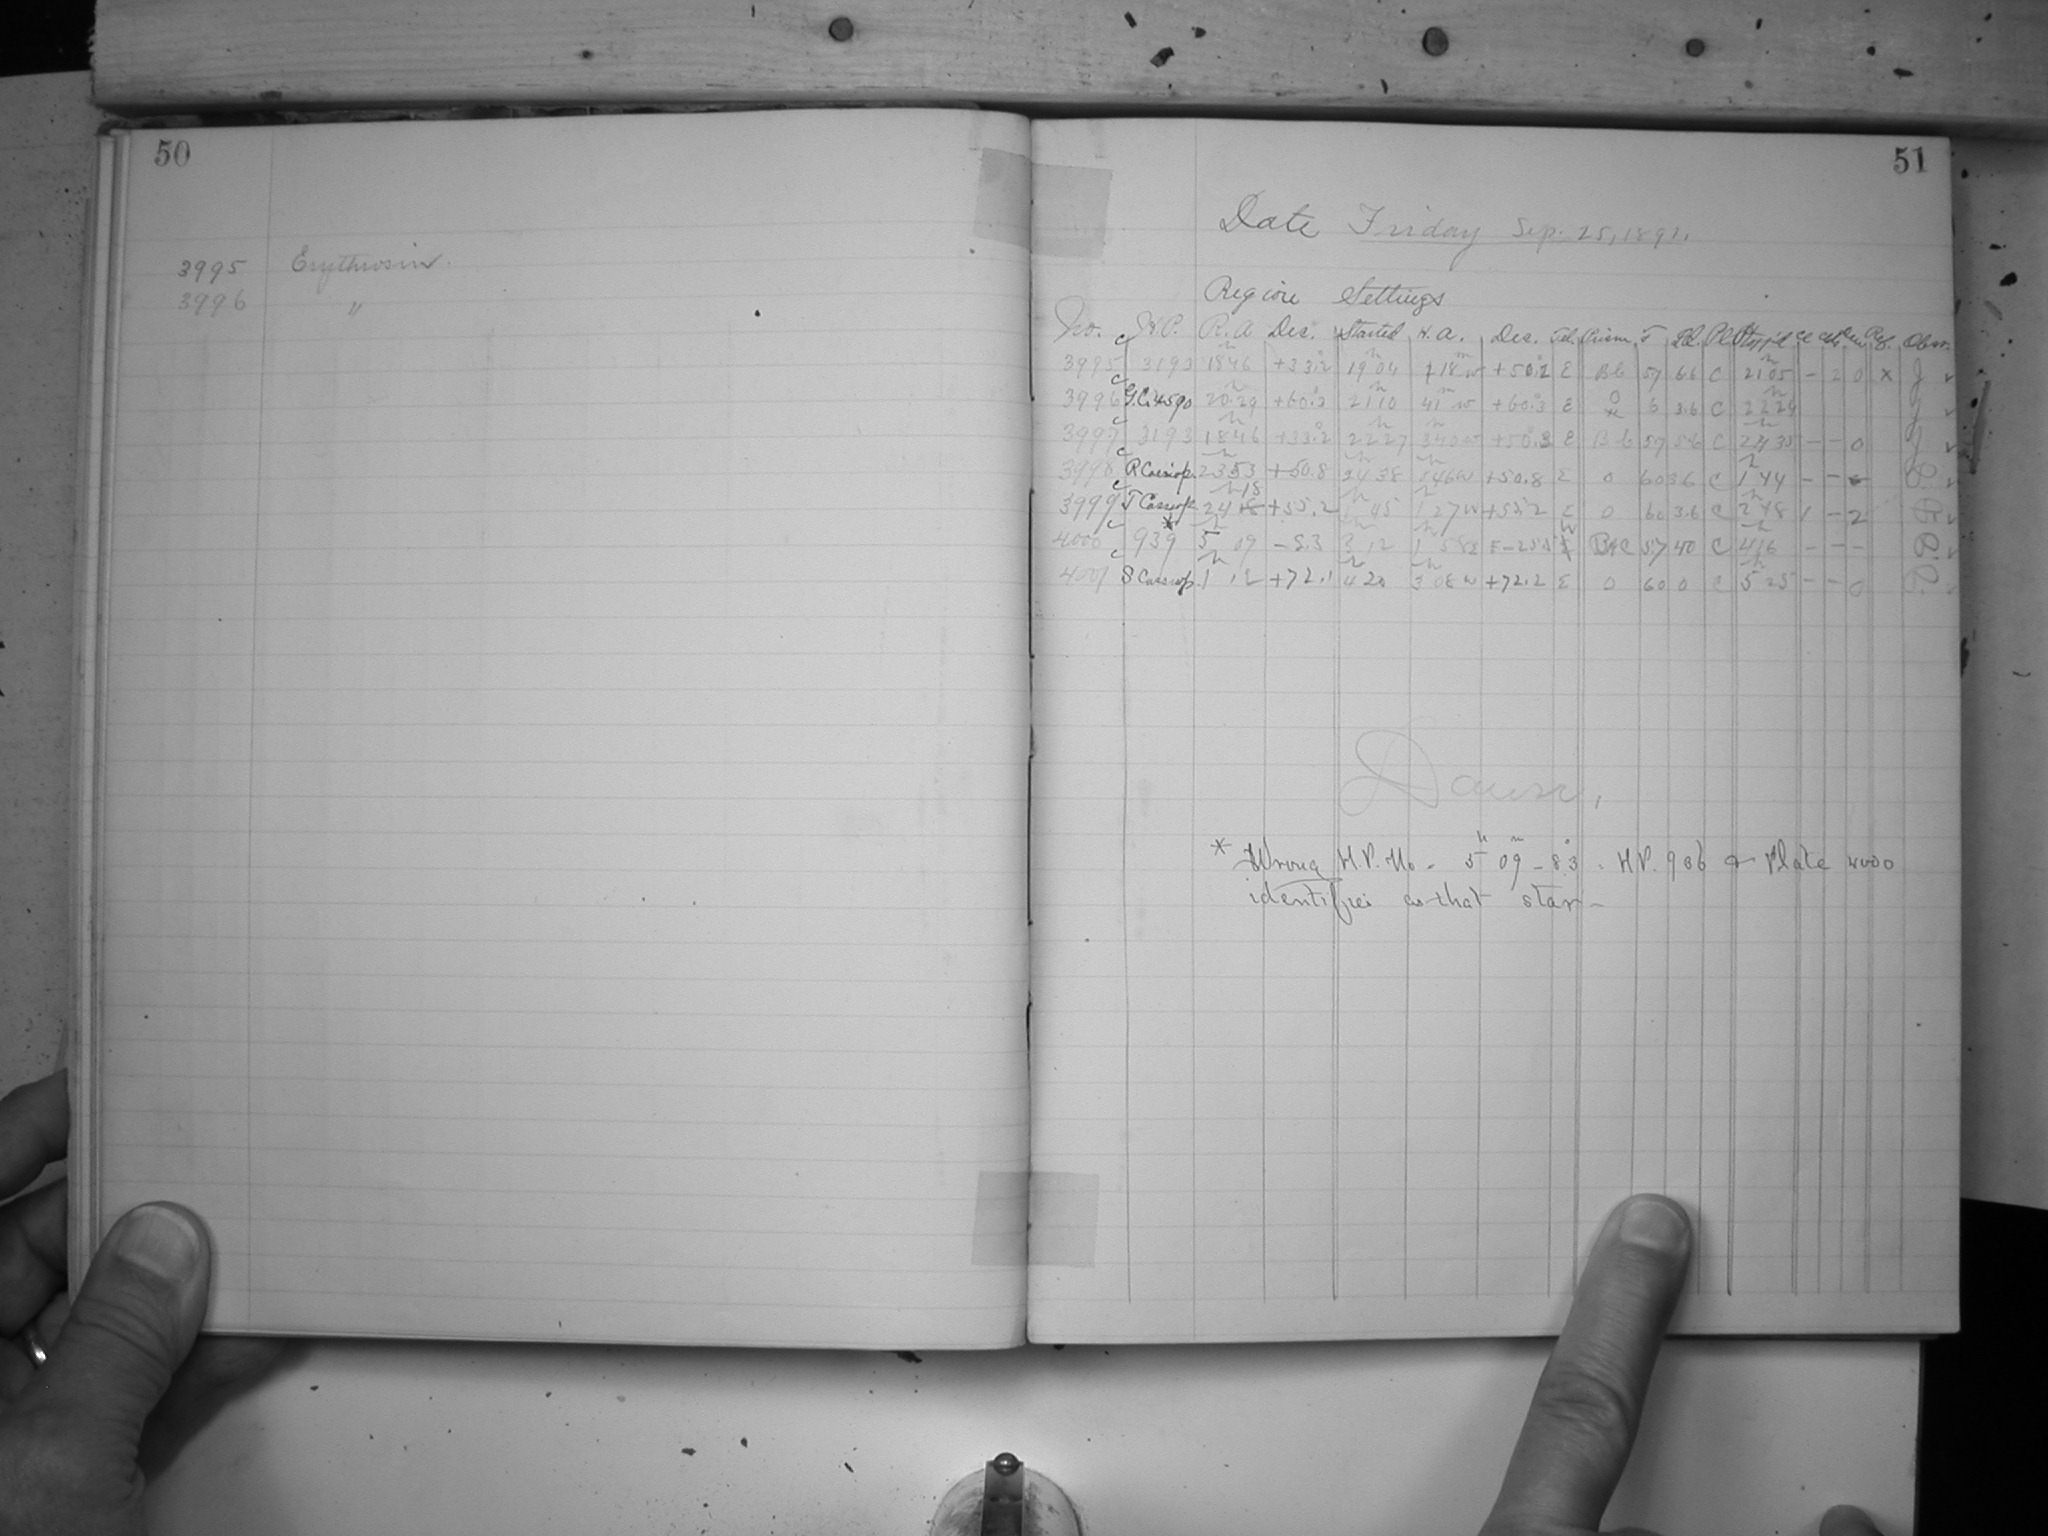 50
3995 Erythrosin.
3996 "
51
Date Friday Sep. 25, 1891.
Region Settings
No. H.P. R.A. Dec. Started H.A. Dec. Tel. Prism. T Pl. Stopp'd Obsr.
3995 3193 18 46 +33.2 19 04 +50.2 E Bb 57 6.6 C 21 05 - 2 0 x J
3996 G.C. 4590 20 29 +60.3 21 10 41 w +60.3 E 0 6 3.6 C 22 24 J
3997 3193 18 46 +33.2 22 27 3 40 w +50.3 E Bb 57 5.6 C 24 35 - - 0 J
3998 R Cassiop. 23 53 +50.8 24 38 1 46 w +50.8 E 0 60 3.6 C 1 44 - -
3999 T Cassiop. 24 18 18 +55.2 1 45 1 27 w +55.2 E 0 60 3.6 C 2 48 1 - 2
4000 939 * 5 09 -8.3 3 12 1 58 E 57 40 C 4 16 - - -
4001 S Cassiop. 1 12 +72.1 4 20 3 08 w +72.2 E 0 60 0 C 5 25 - - 0
Dawn.
* Wrong H.P. No - 5h 09m - 8°.3 . H.P. 936 & Plate 4000
identifies as that star -